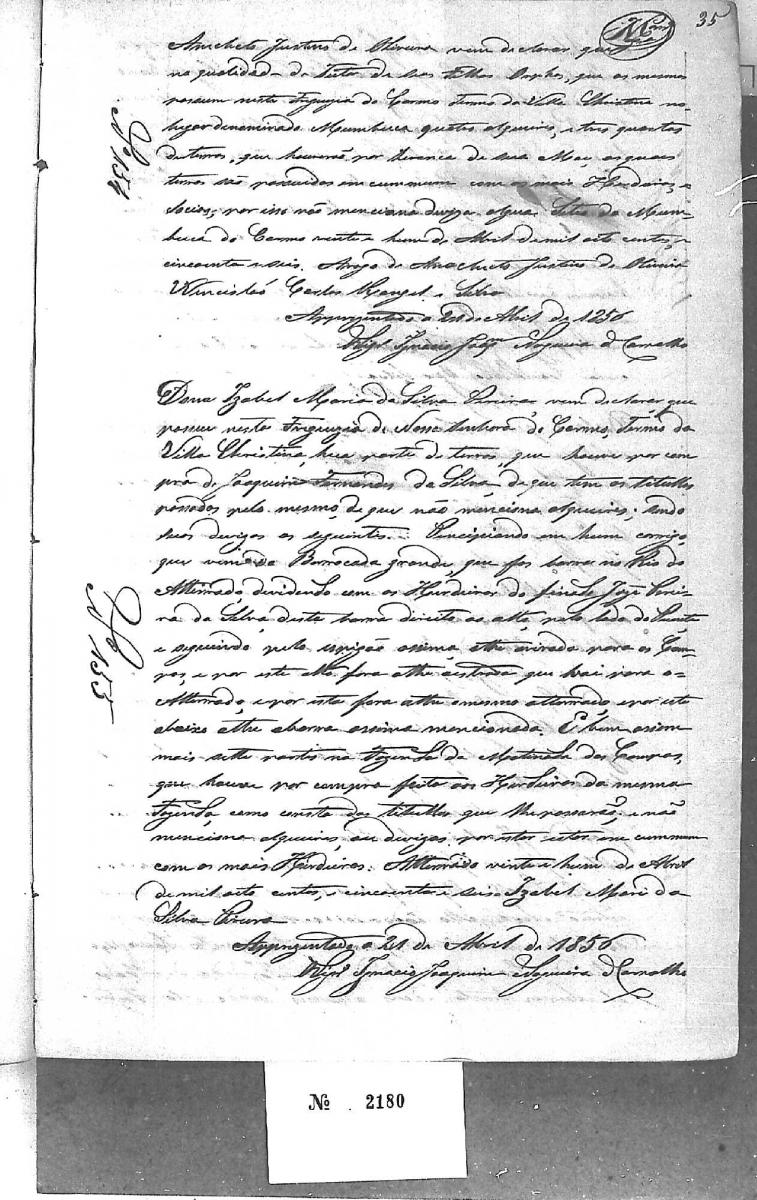 35
Anacleto Justino de Oliveira vem declarar que
na qualidade de Tutor de seos Filhos Orphos, que os mesmos
possuem nesta Freguezia do Carmo Termo da Villa Christina no
lugar denominado Mumbuca quatro alqueires, e tres quartas
de terras, que houverão por herança de sua Mae, as quaes
terras são possuidas em cummum com os mais Herdeiros, e
socios, por isso não menciona diviza algua. Sitio da Mum-
buca do Carmo vinte e hum de Abril de mil oito centos, e
cincoenta e seis. Arogo de Anacleto Justino de Oliveira
Wencisláo Carlos Rangel e Silva
Nº 154
Apprezentado a 21 de Abril de 1856
Vigrº Ignacio Joaqm Nogueira d Carvalho
Dona Izabel Maria da Silva Pereira vem declarar que
possue nesta Freguezia de Nossa Senhora do Carmo, Termo da
Villa Christina, hua parte de terras, que houve por com
pra de Joaquim Fernandes da Silva, de que tem os titullos
passados pelo mesmo, de que não menciona alqueires; sendo
suas divizas as seguintes. Principiando em hum corrigo,
que vem da Borrocada grande, que fas barra no Rio do
Atterrado, devidindo com os Herdeiros do finado Joze Perei-
ra da Silva desta barra direito ao alto, pelo lado do
e seguindo pelo espigão assima athe virada para os Cam-
pos, e por este alto fora athe a estrada que vai para o
Atterrado, e por esta fora athe o mesmo atterrado, e por este
abaixo athe abarra assima mencionada. E bem assim
mais sette partes na Fazenda da Matinada dos Campos,
que houve por compra feita aos Herdeiros da mesma
Fazenda, como consta dos titullos que lhe passarão, e não
menciona alqueires, ou divizas por estar em cummum
com os mais Herdeiros. Atterrado vinte e hum de Abril
de mil oito centos, e cincoenta e seis Izabel Mari da
Silva Pereira
Nº 155
Apprezentado a 21 de Abril de 1856
Vigrº Ignacio Joaquim Nogueira d Carvalho
Nº 2180